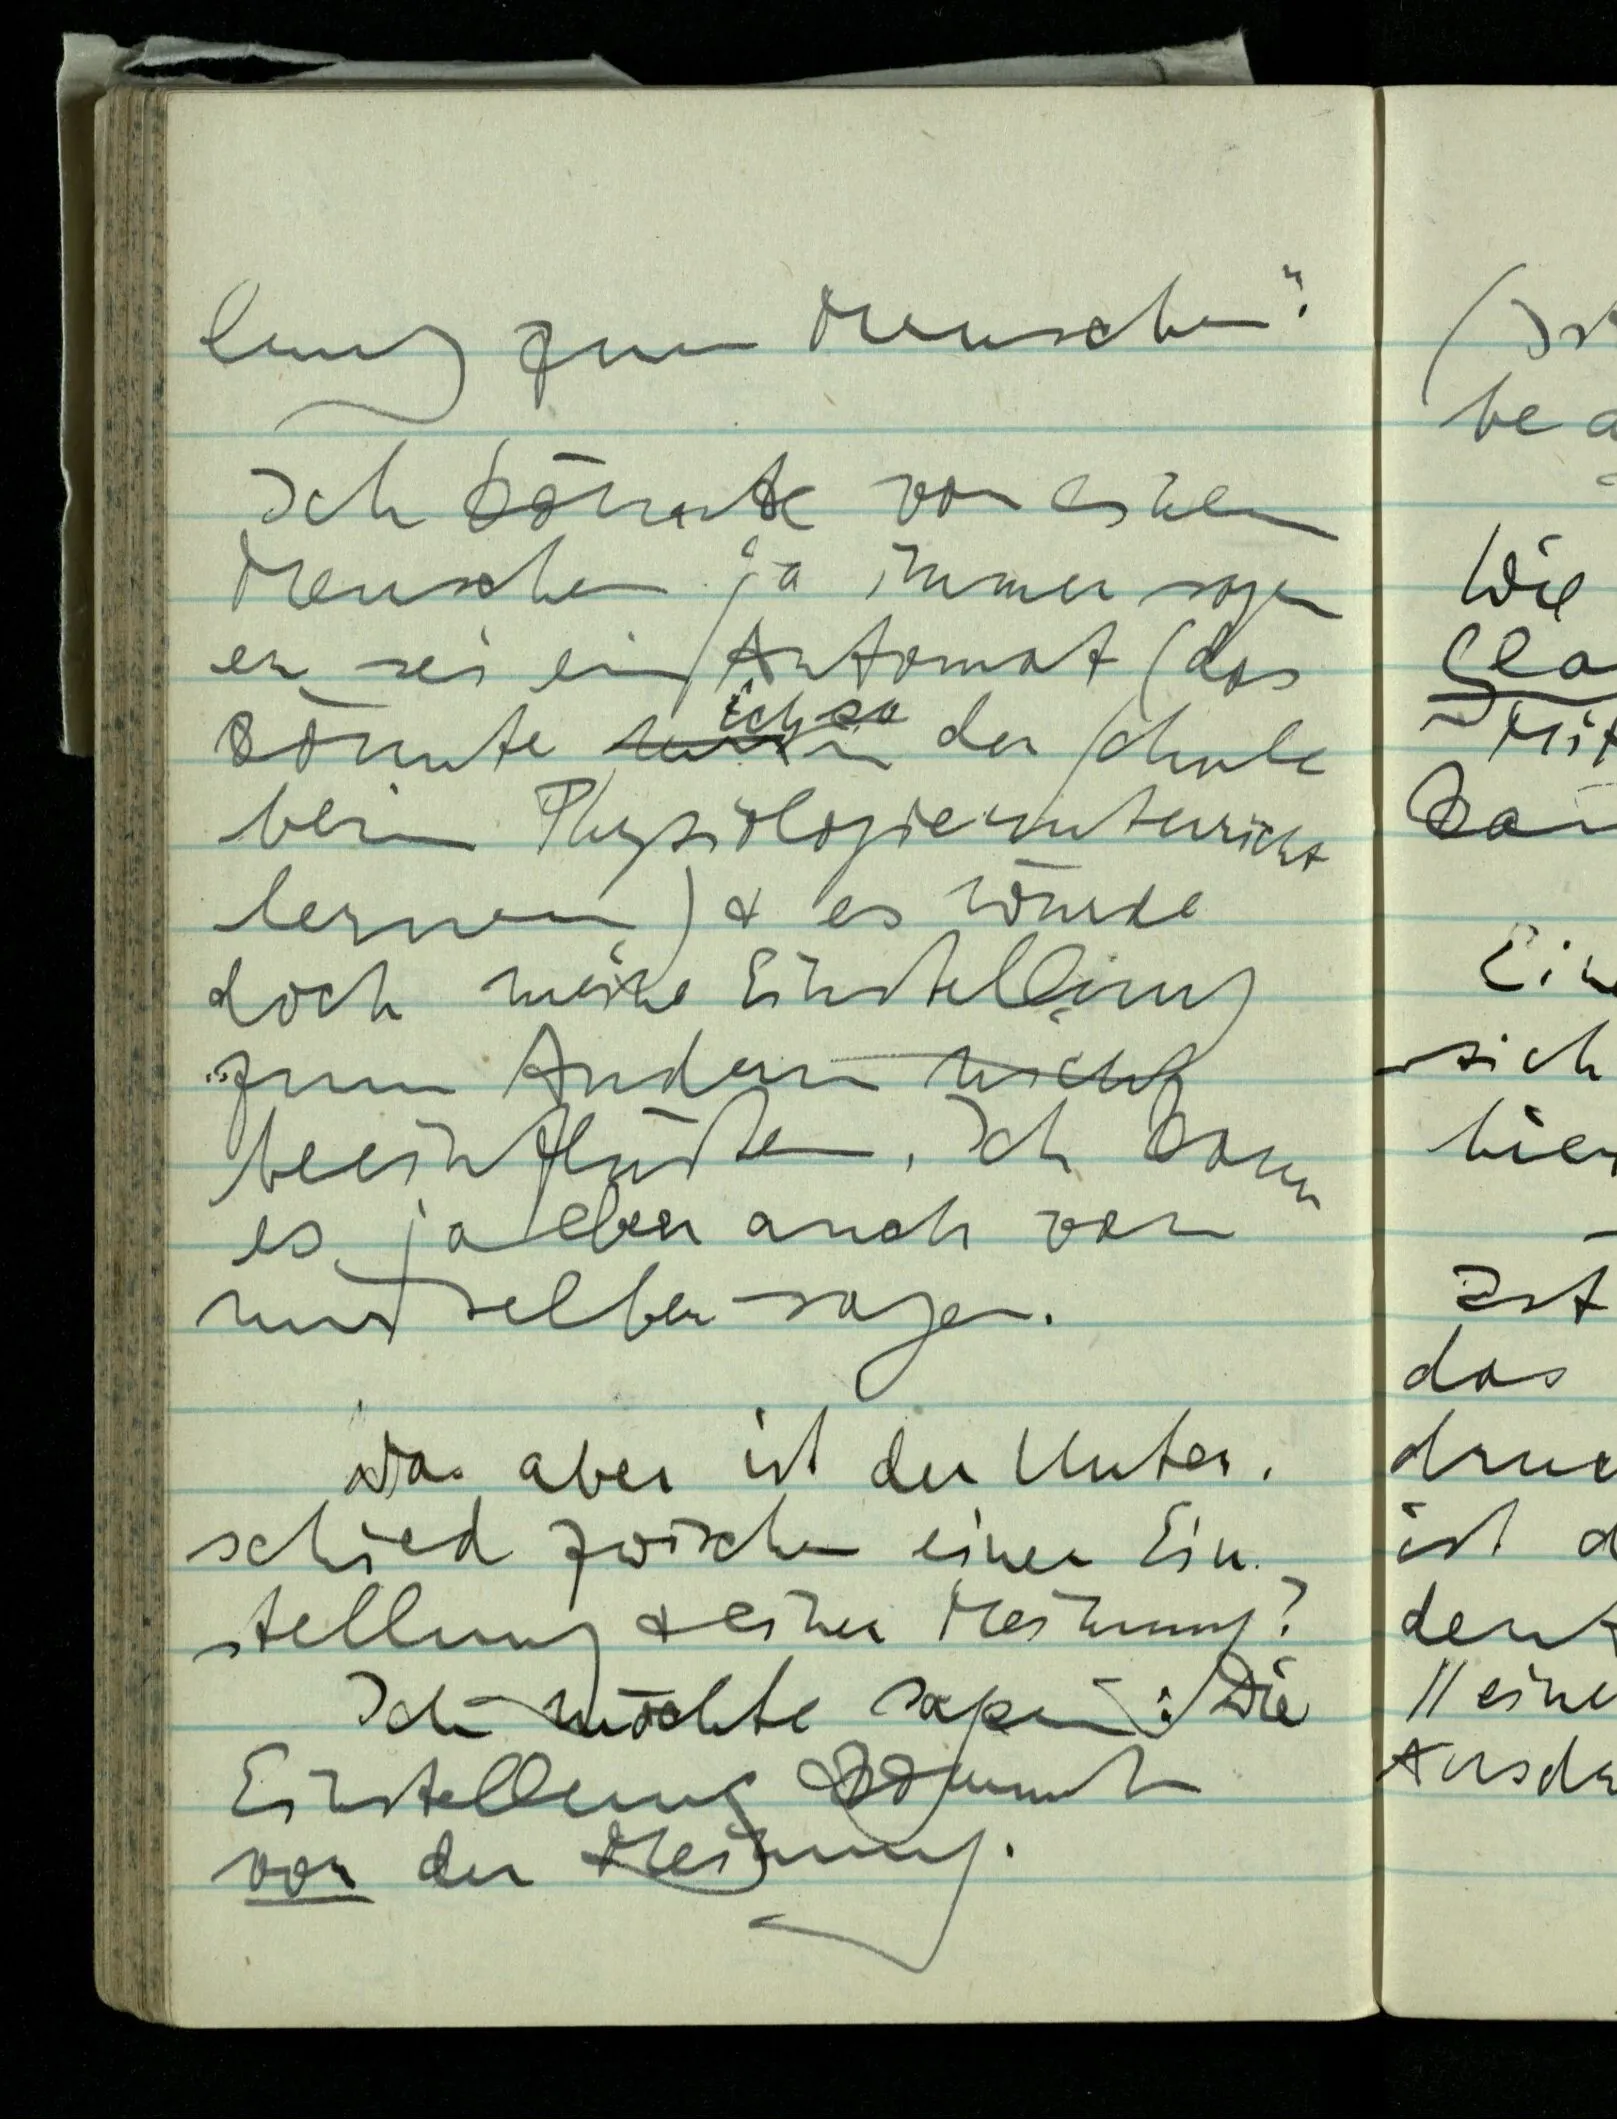 lung zum Menschen".
Ich könnte von einem
Menschen ja immer sagen
er sei ein Automat (das
könnte ich so in der Schule
beim Physiologieunterricht
lernen) & es würde
doch meine Einstellung
zum Andern nicht
beeinflußen. Ich kann
es ja eben auch von
mir selber sagen.
Was aber ist der Unter-
schied zwischen einer Ein-
stellung & einer Meinung?
Ich möchte sagen: Die
Einstellung kommt
vor der Meinung.
(Ist
be
Wie
Mit
sich
hier
Ist
das
ist d
// eine
Ausdr